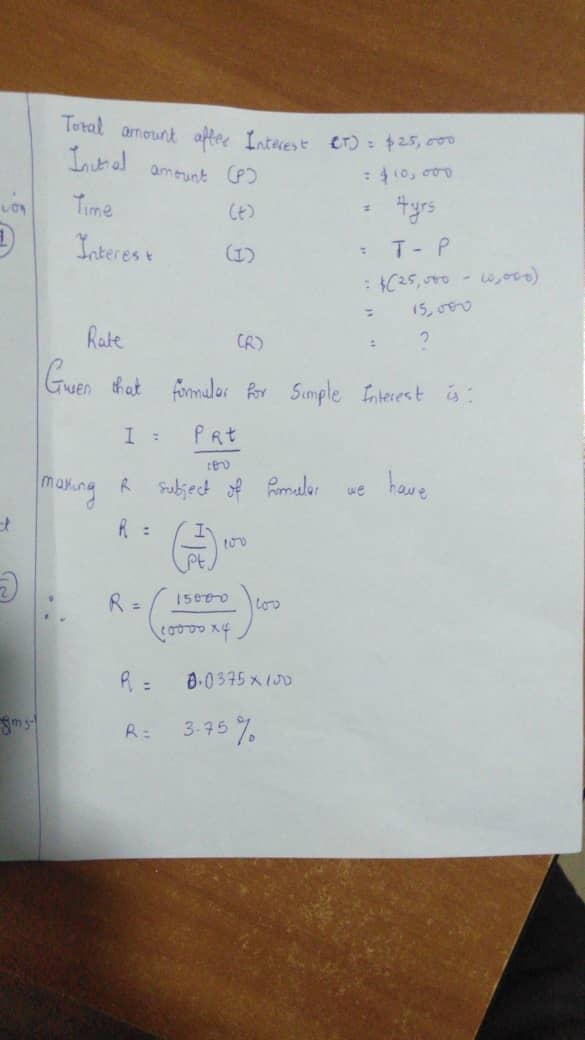 Total amount after Interest (T) = $25,000
Initial amount (P) = $10,000
Time (t) = 4yrs
Interest (I) = T - P
= $(25,000 - 10,000)
= 15,000
Rate (R) = ?
Given that formular for Simple Interest is:
I = PRt
100
making R subject of formular we have
R = (I
Pt) 100
∴ R = (15000
10000 x 4) 100
R = 0.0375 x 100
R = 3.75 %
1
2